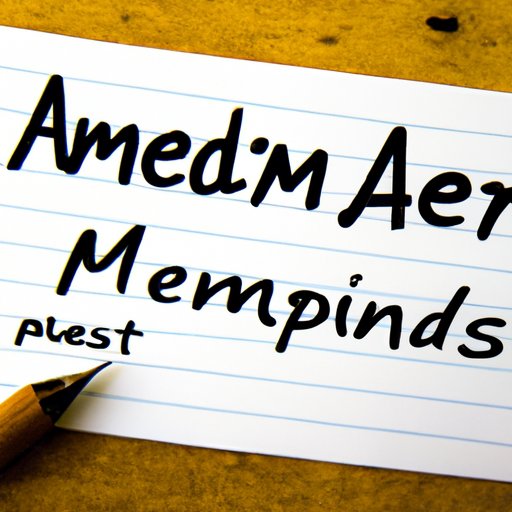 Amed.m Aer
Mempinds
plest